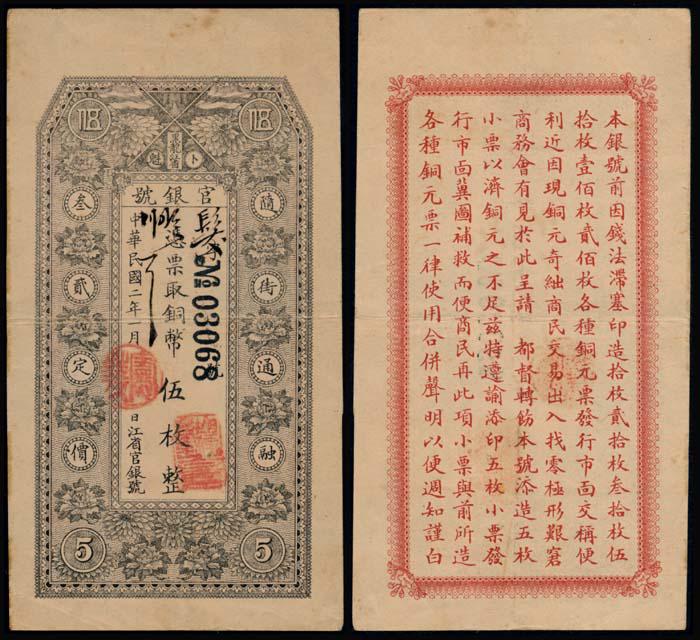 卜魁
官銀號
隨街通融
№03068
憑票取銅幣伍枚整
中華民國二年一月 日江省官銀號
叁貳定價
5
5
本銀號前因錢法滯塞印造拾枚貳拾枚叁拾枚伍
拾枚壹佰枚貳佰枚各種銅元票發行市面交稱便
利近因現銅元奇絀商民交易出入找零極形艱窘
商務會有見於此呈請 都督轉飭本號添造五枚
小票以濟銅元之不足茲特遵諭添印五枚小票發
行市面冀圖補救而便商民再此項小票與前所造
各種銅元票一律使用合併聲明以便週知謹白